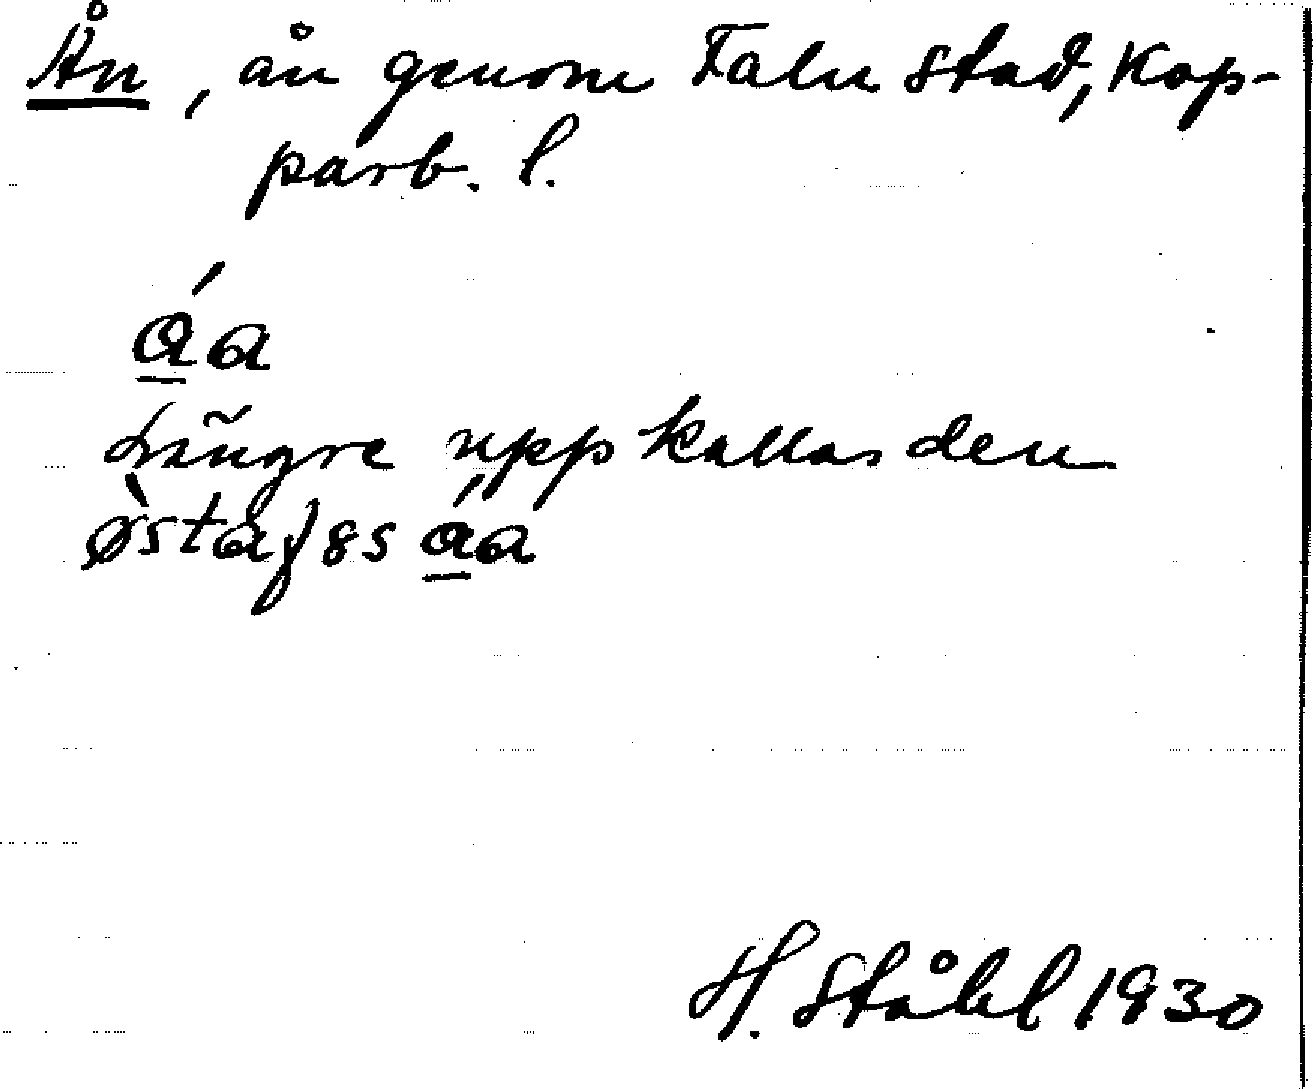 Ån, ån genom Falu stad, Kop-
parb. l.
á̱a
Längre upp kallas den
á̱a
H. Ståhl 1930